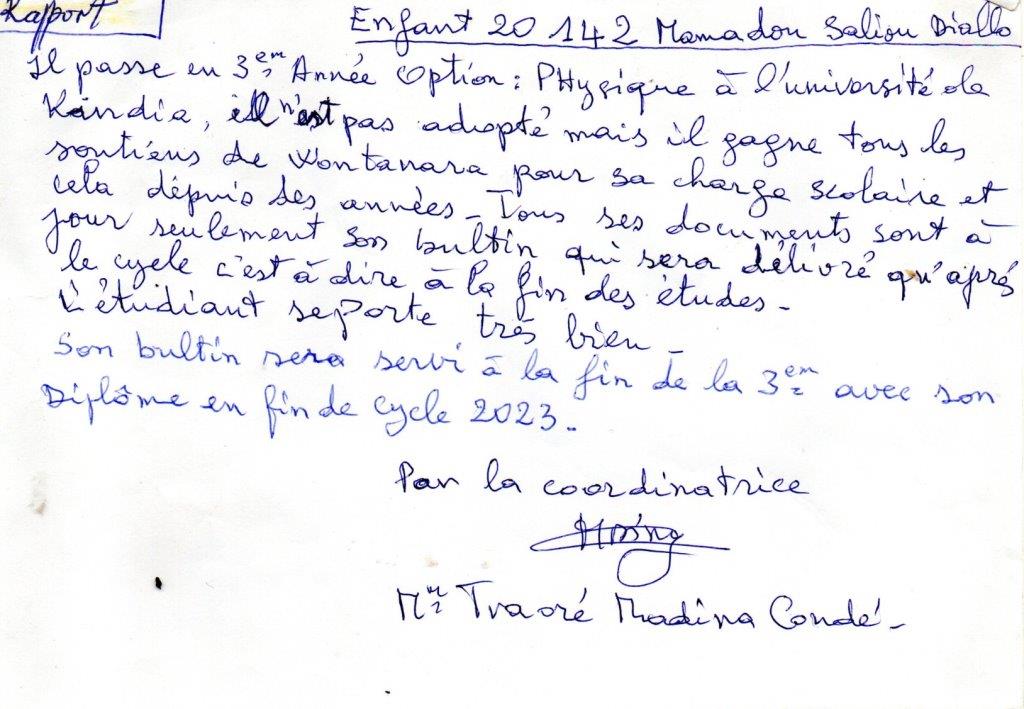 Rapport
Enfant 20 142 Mamadou Saliou Diallo
Il passe en 3em Année Option : PHysique à l'université de
Kindia, il n'est pas adopté mais il gagne tous les
soutiens de Wontanara pour sa charge scolaire et
cela dépuis des années - Tous ses documents sont à
jour seulement son bultin qui sera délivré qu'aprés
le cycle c'est à dire à la fin des études -
L'étudiant se porte très bien -
Son bultin sera servi à la fin de la 3em avec son
Diplôme en fin de cycle 2023.
Par la coordinatrice
Mme Traoré Madina Condé -